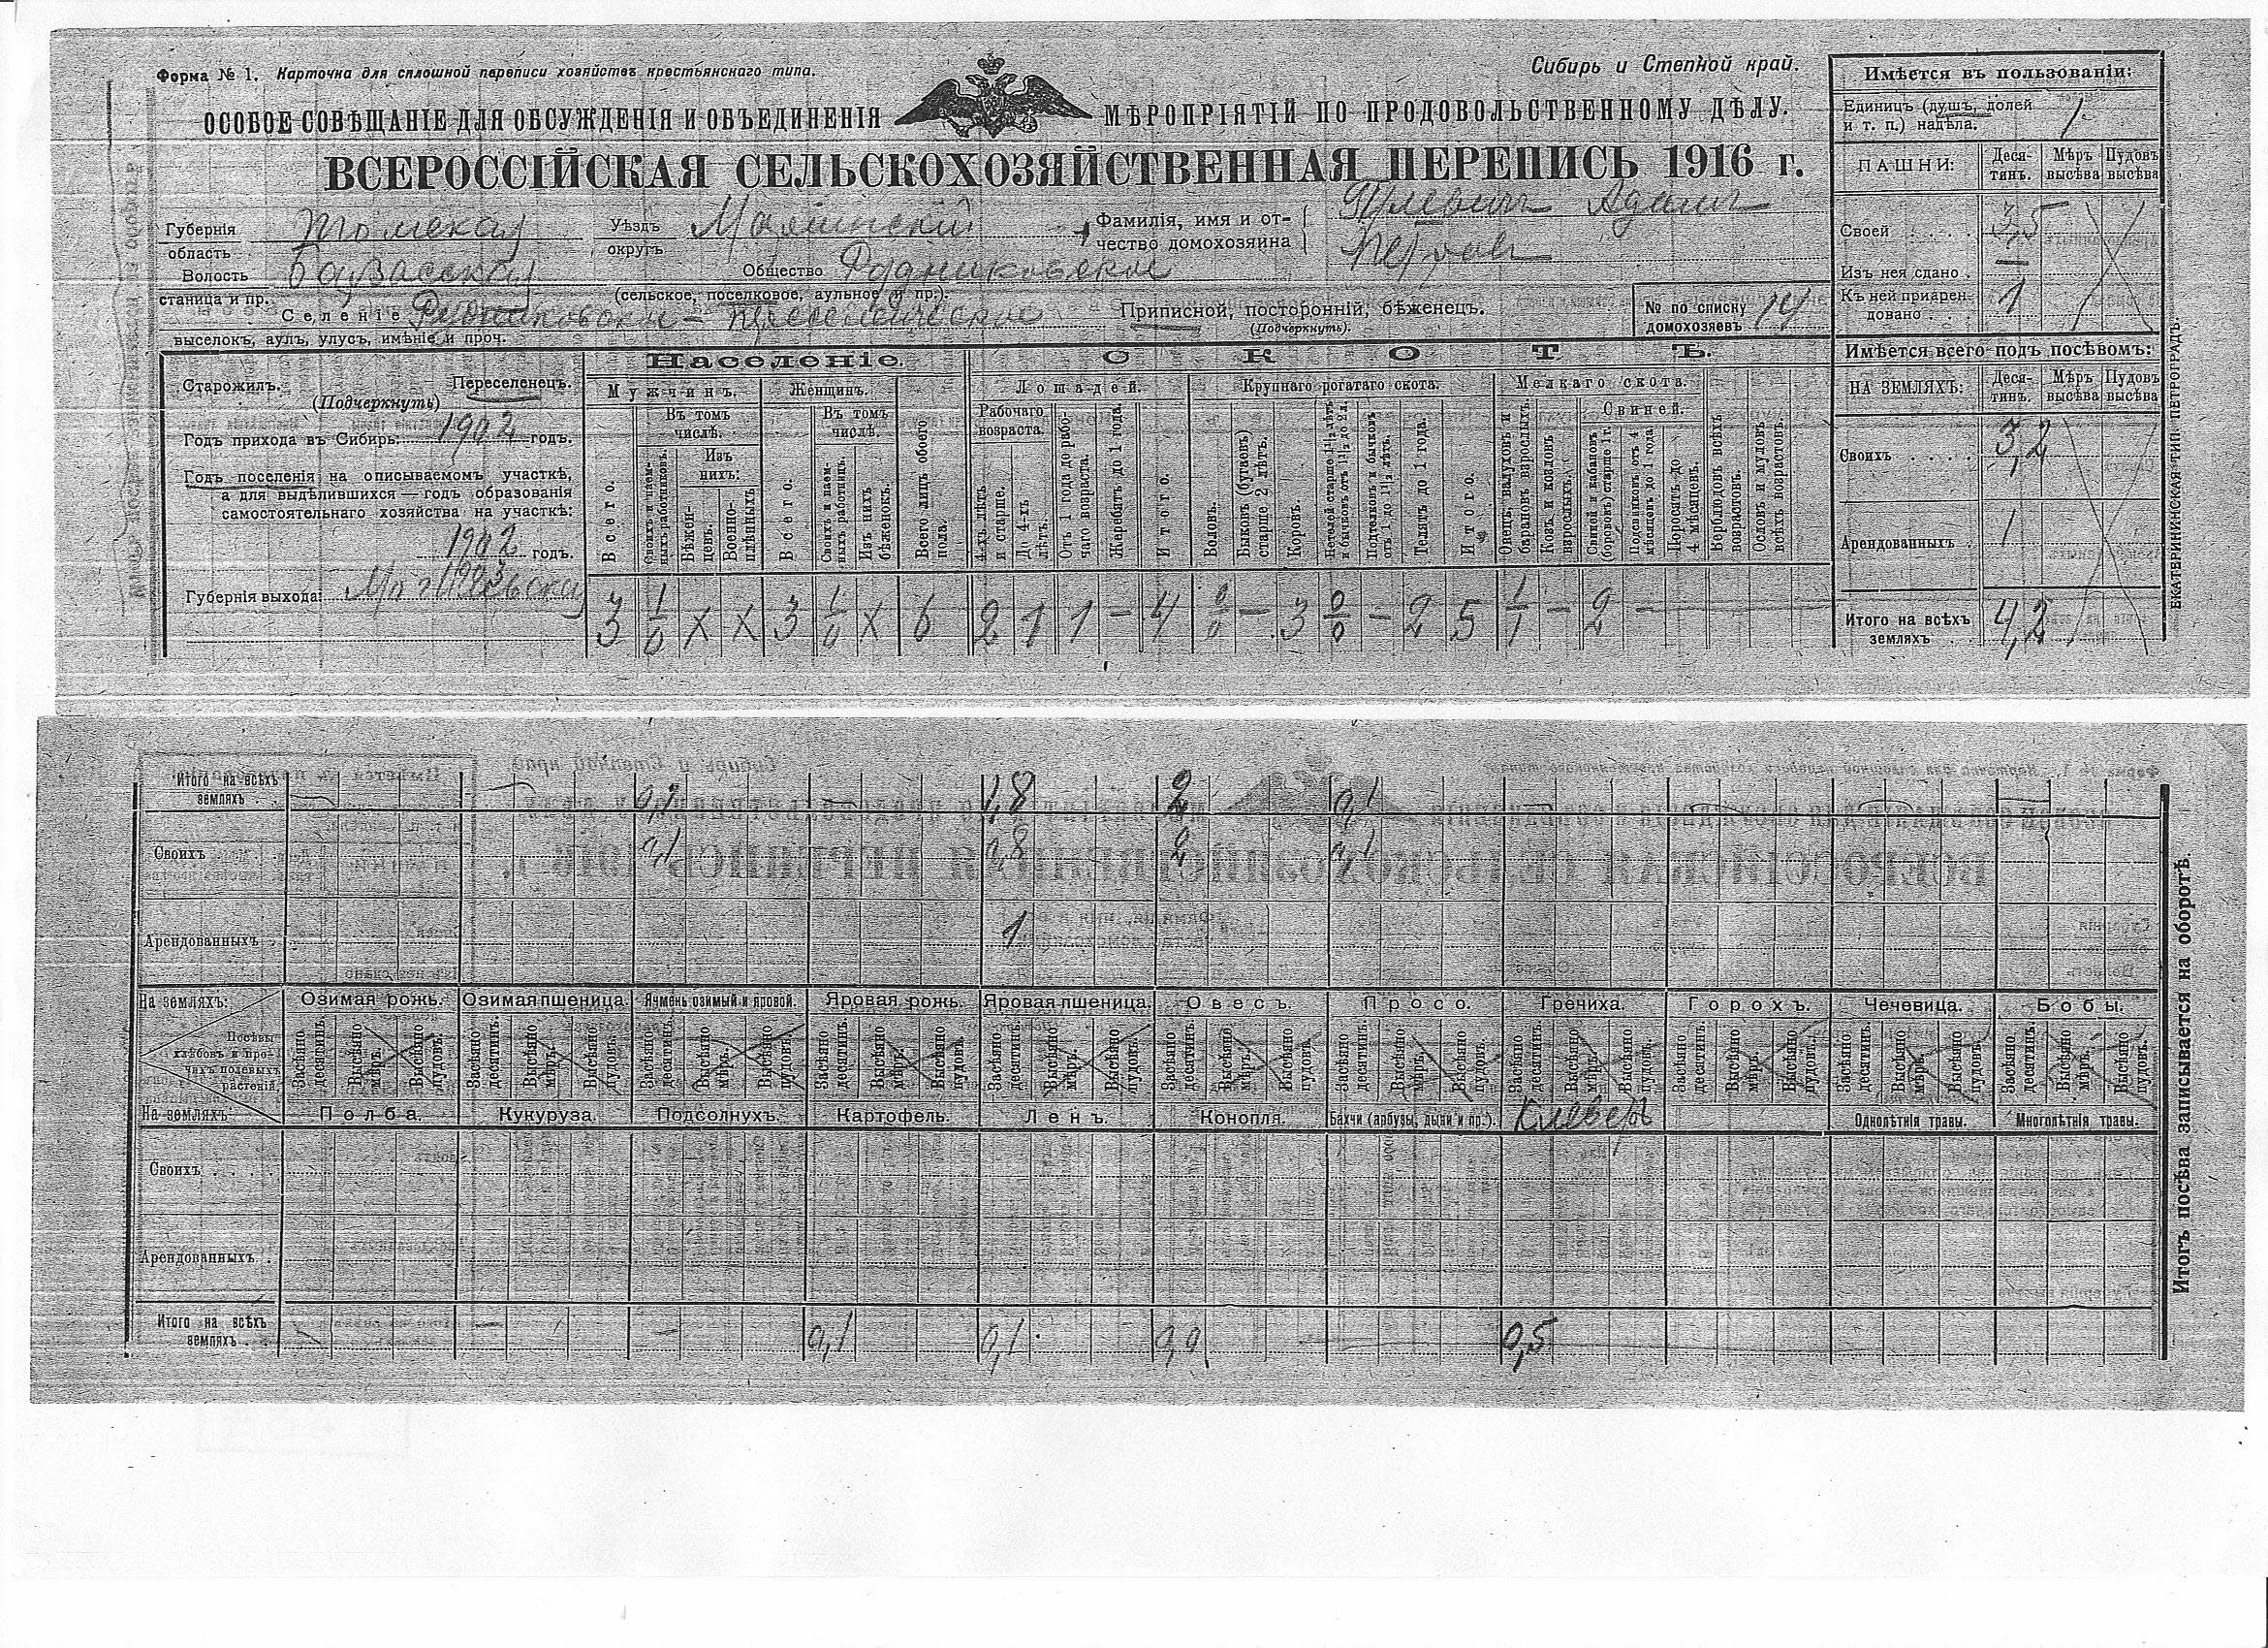 Форма № 1. Карточка для сплошной переписи хозяйствъ крестьянскаго типа.
Сибирь и Степной край.
ОСОБОЕ СОВѢЩАНІЕ ДЛЯ ОБСУЖДЕНІЯ И ОБЪЕДИНЕНІЯ МѢРОПРІЯТІЙ ПО ПРОДОВОЛЬСТВЕННОМУ ДѢЛУ.
ВСЕРОССІЙСКАЯ СЕЛЬСКОХОЗЯЙСТВЕННАЯ ПЕРЕПИСЬ 1916 г.
Губернія область Томская
Уѣздъ округъ Маріинскій
Фамилія, имя и отчество домохозяина Адамъ
Волость станица и пр.
Общество
(сельское, поселковое, аульное и пр.).
Селеніе
выселокъ, аулъ, улусъ, имѣніе и проч.
Приписной, посторонній, бѣженецъ.
(Подчеркнуть).
№ по списку домохозяевъ 14
Имѣется въ пользованіи:
Единицъ (душъ, долей и т. п.) надѣла. 1
ПАШНИ: Деся-тинъ. Мѣръ высѣва Пудовъ высѣва
Своей 3,5
Изъ нея сдано —
Къ ней приарендовано 1
Имѣется всего подъ посѣвомъ:
НА ЗЕМЛЯХЪ: Деся-тинъ. Мѣръ высѣва Пудовъ высѣва
Своихъ 3,2
Арендованныхъ 1
Итого на всѣхъ земляхъ 4,2
ЕКАТЕРИНИНСКАЯ ТИП. ПЕТРОГРАДЪ.
Старожилъ. Переселенецъ.
(Подчеркнуть)
Годъ прихода въ Сибирь: 1902 годъ.
Годъ поселенія на описываемомъ участкѣ,
а для выдѣлившихся — годъ образованія
самостоятельнаго хозяйства на участкѣ:
1902 годъ.
Губернія выхода:
Населеніе.
Мужчинъ. Женщинъ.
Всего.
Въ томъ числѣ.
Своихъ и наемныхъ работниковъ.
Изъ нихъ:
Бѣженцевъ.
Военно-плѣнныхъ
Всего.
Въ томъ числѣ.
Своихъ и наемныхъ работницъ.
Изъ нихъ бѣженокъ.
Всего лицъ обоего пола.
СКОТЪ.
Лошадей. Крупнаго рогатаго скота. Мелкаго скота.
Рабочаго возраста.
4-хъ лѣтъ и старше.
До 4-хъ лѣтъ.
Отъ 1 года до рабочаго возраста.
Жеребятъ до 1 года.
Итого.
Воловъ.
Быковъ (бугаевъ) старше 2 лѣтъ.
Коровъ.
Нетелей старше 1½ лѣтъ и бычковъ отъ 1½ до 2 л.
Подтелковъ и бычковъ отъ 1 до 1½ лѣтъ.
Телятъ до 1 года.
Итого.
Овецъ, валуховъ и барановъ взрослыхъ.
Козъ и козловъ взрослыхъ.
Свиней.
Свиней и кабановъ (борововъ) старше 1 г.
Подсвинковъ отъ 4 мѣсяцевъ до 1 года.
Поросятъ до 4 мѣсяцевъ.
Верблюдовъ всѣхъ возрастовъ.
Ословъ и муловъ всѣхъ возрастовъ.
3 1/0 X X 3 1/0 X 6 2 1 1 – 4 0/0 – 3 0/0 – 2 5 1/1 – 2 –
Итого на всѣхъ земляхъ 1,8 2 0,1
Своихъ 0,1 0,8 2 0,1
Арендованныхъ 1
На земляхъ: Озимая рожь. Озимая пшеница. Ячмень озимый и яровой. Яровая рожь. Яровая пшеница. Овесъ. Просо. Гречиха. Горохъ. Чечевица. Бобы.
Посѣвы хлѣбовъ и прочихъ полевыхъ растеній.
Засѣяно десятинъ. Высѣяно мѣръ. Высѣяно пудовъ.
На земляхъ: Полба. Кукуруза. Подсолнухъ. Картофель. Ленъ. Конопля. Бахчи (арбузы, дыни и пр.). Клеверъ Однолѣтнія травы. Многолѣтнія травы.
Своихъ
Арендованныхъ
Итого на всѣхъ земляхъ – – – 0,1 0,1 0,5
Итогъ посѣва записывается на оборотѣ.